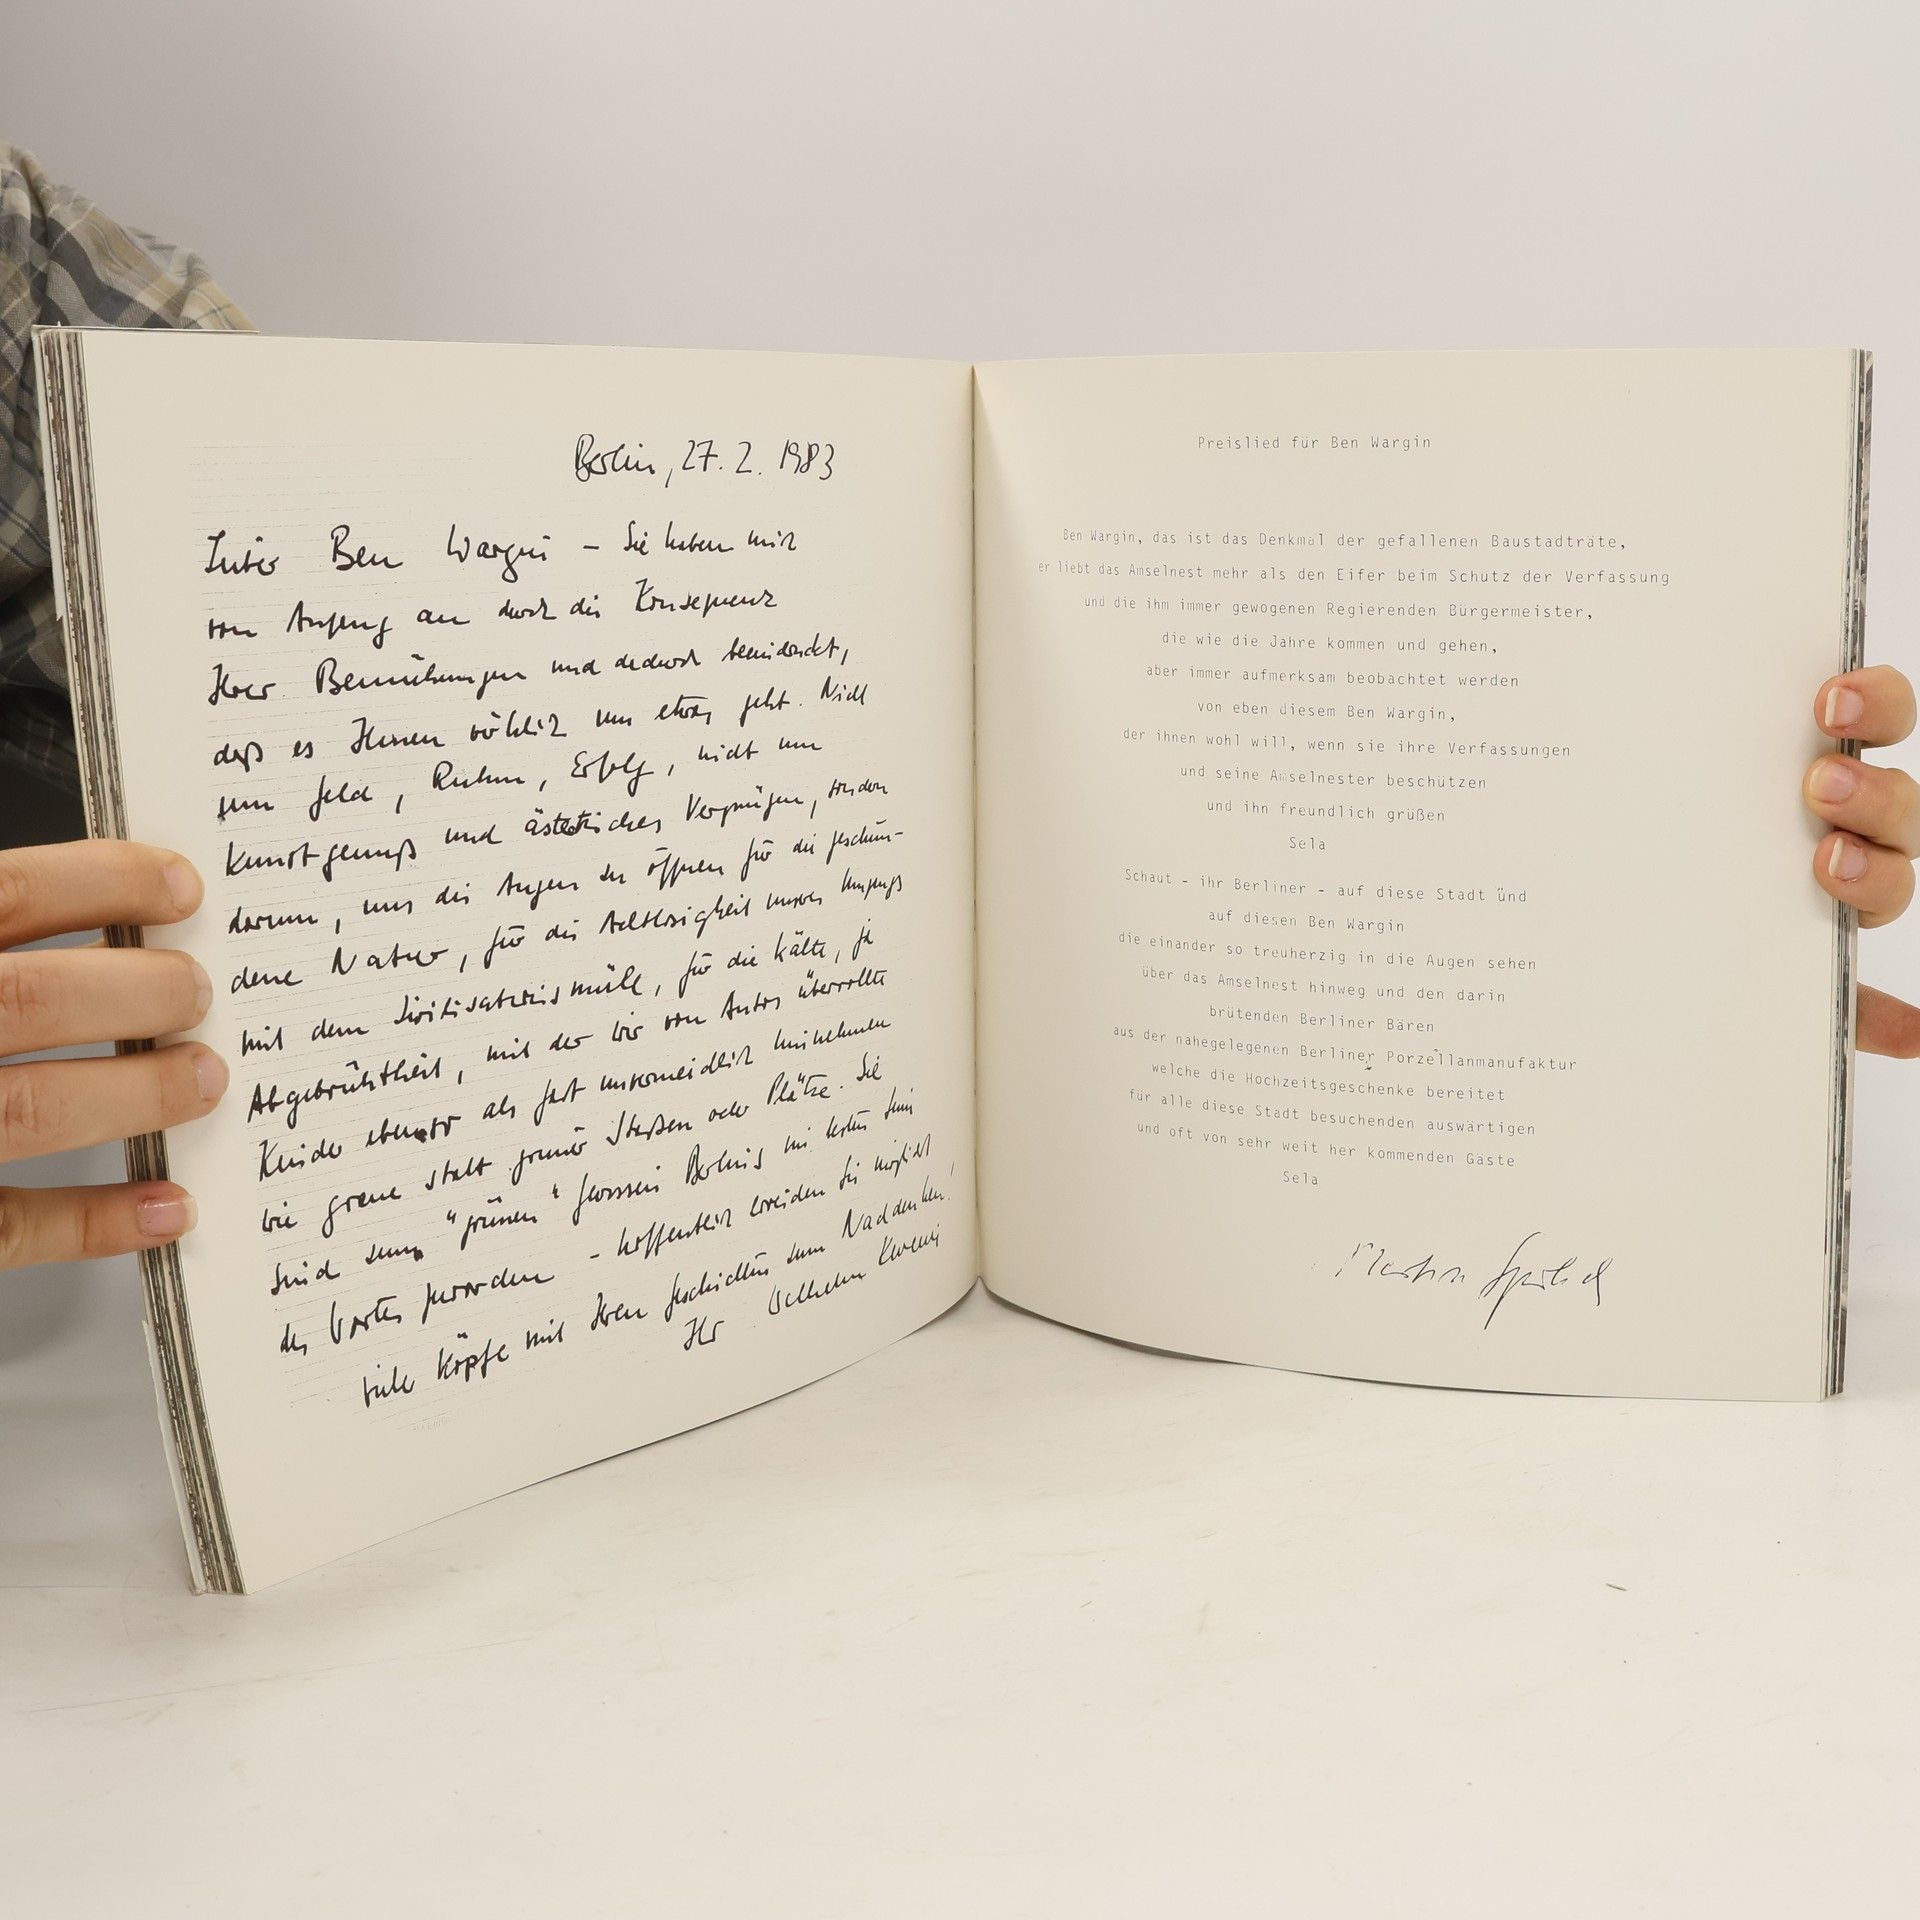 Berlin, 27. 2. 1983
Lieber Ben Wargin – Sie haben mich
von Anfang an durch die Konsequenz
Ihrer Bemühungen und dadurch beeindruckt,
daß es Ihnen wirklich um etwas geht. Nicht
um Geld, Ruhm, Erfolg, nicht um
Kunstgenuß und ästhetisches Vergnügen, sondern
darum, uns die Augen zu öffnen für die geschun-
dene Natur, für die Achtlosigkeit unseres Umgangs
mit dem Zivilisationsmüll, für die Kälte, ja
Abgebrühtheit, mit der wir von Autos überrollte
Kinder ebenso als fast unvermeidlich hinnehmen
wie graue statt grüner Straßen oder Plätze. Sie
sind zum "grünen" Gewissen Berlins im besten Sinn
des Wortes geworden – hoffentlich erreichen Sie möglichst
viele Köpfe mit Ihren Geschichten zum Nachdenken!
Ihr Wilhelm
Preislied für Ben Wargin
Ben Wargin, das ist das Denkmal der gefallenen Baustadträte,
er liebt das Amselnest mehr als den Eifer beim Schutz der Verfassung
und die ihm immer gewogenen Regierenden Bürgermeister,
die wie die Jahre kommen und gehen,
aber immer aufmerksam beobachtet werden
von eben diesem Ben Wargin,
der ihnen wohl will, wenn sie ihre Verfassungen
und seine Amselnester beschützen
und ihn freundlich grüßen
Sela
Schaut - ihr Berliner - auf diese Stadt ünd
auf diesen Ben Wargin
die einander so treuherzig in die Augen sehen
über das Amselnest hinweg und den darin
brütenden Berliner Bären
aus der nahegelegenen Berliner Porzellanmanufaktur
welche die Hochzeitsgeschenke bereitet
für alle diese Stadt besuchenden auswärtigen
und oft von sehr weit her kommenden Gäste
Sela
Martin